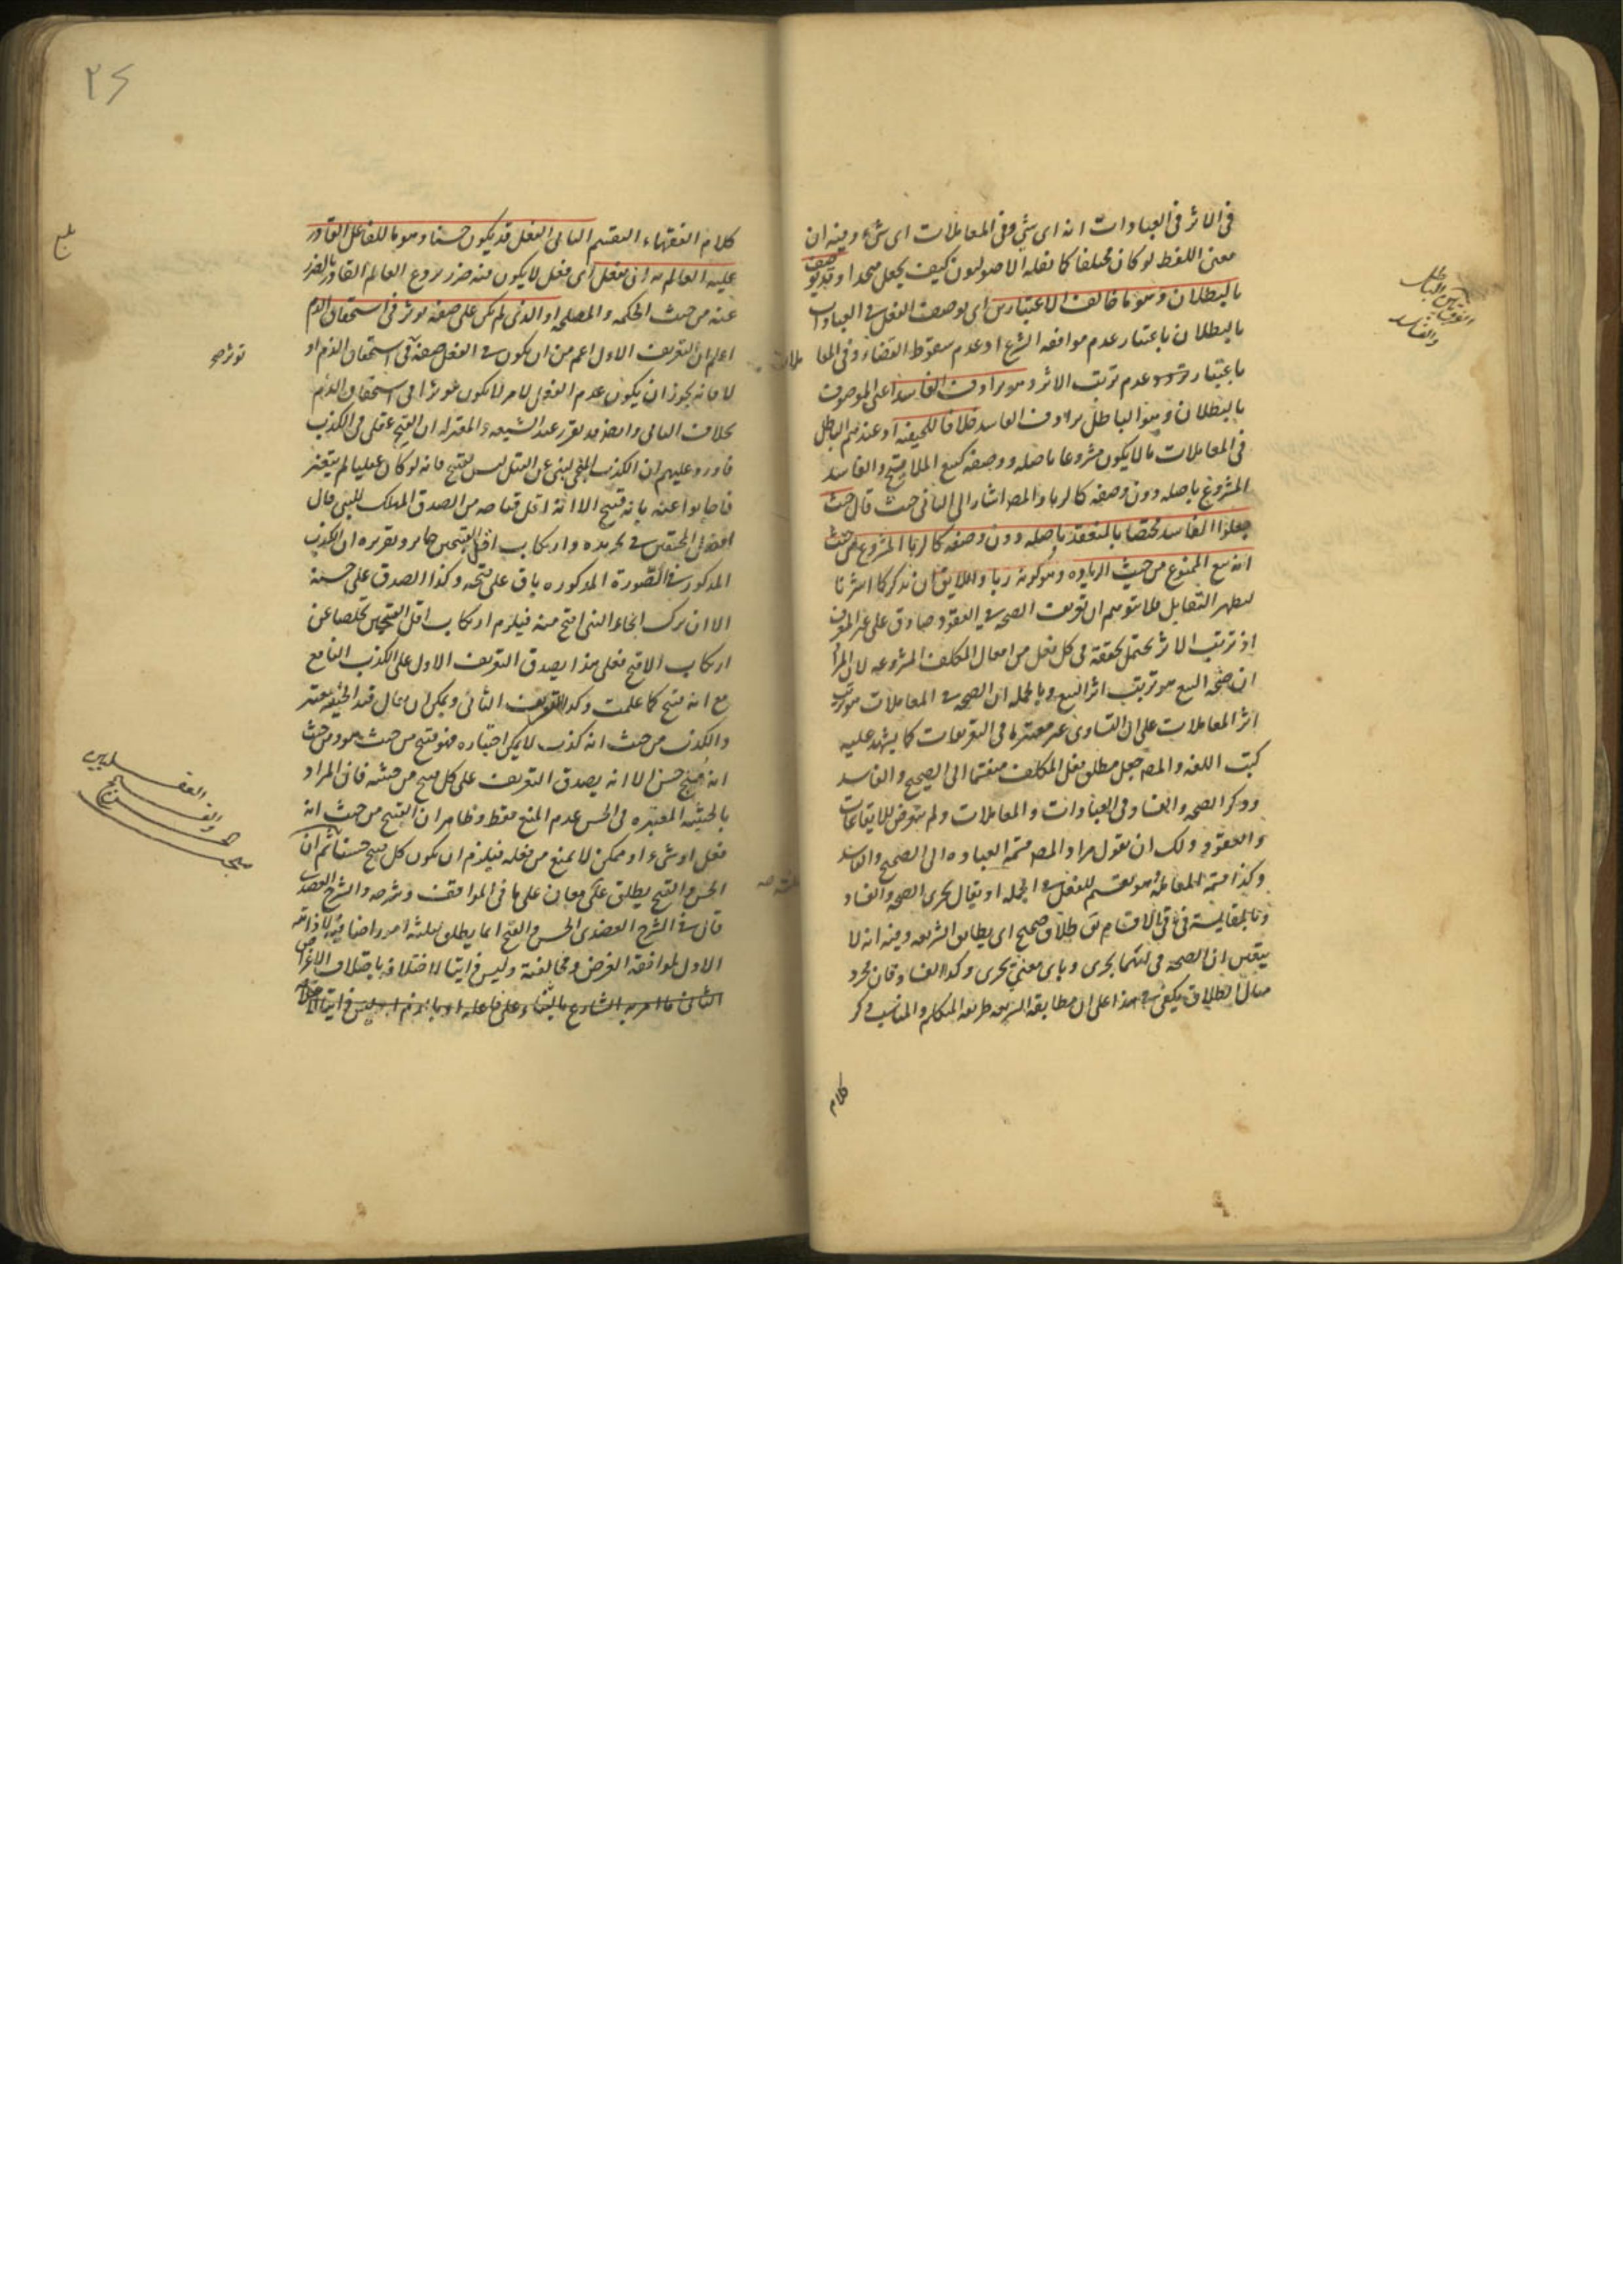 في الاثر في العبادات انه اى شئ وفى المعاملات اى شئ وفيه ان
معنى اللفظ لو كان مختلفا كما نقله الاصوليون كيف يجعل متحدا وقد يوصف
بالبطلان وهو ما خالف الاعتبارين اى يوصف الفعل في العبادات
بالبطلان باعتبار عدم موافقة الشرع او عدم سقوط القضاء وفى المعاملات
باعتبار عدم ترتب الاثر وهو يرادف الفاسد اعنى الموصوف
بالبطلان وهو الباطل يرادف الفاسد خلافا للحنفية اذ عندهم الباطل
فى المعاملات ما لا يكون مشروعا باصله ووصفه كبيع الملاقيح والفاسد
المشروع باصله دون وصفه كالربا والمص اشار الى الثانى حيث قال حيث
جعلوا الفاسد مختصا بالمنعقد باصله دون وصفه كالربا المشروع من حيث
انه بيع الممنوع من حيث الزياده وهو كونه ربا واللايق ان يذكر كما اشرنا
ليظهر التقابل فلا يتوهم ان تعريف الصحه في العقود صادق على غير المعرف
اذ ترتب الاثر يحتمل تحققه فى كل فعل من افعال المكلف المشروعه لان المراد
ان صحة البيع هو ترتب اثر البيع وبالجمله ان الصحه في المعاملات هو ترتب
اثر المعاملات على ان التساوى غير معتبر ها فى التعريفات كما يشهد عليه
كتب اللغه والمص جعل مطلق فعل المكلف منقسما الى الصحيح والفاسد
وذكر الصحه والفساد فى العبادات والمعاملات ولم يتعرض للايقاعات
والعقود ولك ان تقول مراد المص قسمة العباده الى الصحيح والفاسد
وكذا قسمة المعاملة هو تقسيم للفعل في الجمله او يقال يجرى الصحه والفساد
وبالمقايسة فى باقى الاقسام يق طلاق صحيح اى يطابق الشريعه وفيه انه لا
يتعين ان الصحه فى ايهما يجرى وباى معنى يجرى وكذا الفساد فان مجرد
مثال الطلاق يكفى في هذا على ان مطابقة الشريعه طريقه المتكلم والمناسب ذكر
كلام
الفرق بين الباطل
والفاسد
٢٤
كلام الفقهاء التقسيم الثانى الفعل قد يكون حسنا وهو ما للفاعل القادر
عليه العالم به ان يفعل اى فعل لا يكون فيه ضرر يردع العالم القادر بالضرر
عنه من حيث الحكمه والمصلحه او الذى لم يكن على صفة مؤثرة فى استحقاق الذم
اعلم ان التعريف الاول اعم من ان يكون في الفعل صفة فى استحقاق الذم او
لا فانه يجوز ان يكون عدم الفعل لامر لا يكون مؤثرا فى استحقاق الذم
بخلاف الثانى وايضا قد تقرر عند الشيعه والمعتزله ان القبح عقلى فى الكذب
فاورد عليهم ان الكذب المنجى لنبى عن القتل ليس بقبيح فانه لو كان عقليا لم يتغير
فاجابوا عنه بانه قبيح الا انه اقل قباحه من الصدق المهلك للنبى قال
افضل المحققين في تجريده وارتكاب اقل القبيحين جايز وتقريره ان الكذب
المذكور في الصورة المذكوره باق على قبحه وكذا الصدق على حسنه
الا ان ترك انجاء النبى اقبح منه فيلزم ارتكاب اقل القبيحين تخلصا عن
ارتكاب الاقبح فعلى هذا يصدق التعريف الاول على الكذب النافع
مع انه قبيح كما علمت وكذا التعريف الثانى ويمكن ان يقال قيد الحيثيه معتبر
والكذب من حيث انه كذب لا يمكن اختياره فهو قبيح من حيث هو ومن حيث
انه منج حسن الا انه يصدق التعريف على كل قبيح من حيثيه فان المراد
بالحيثيه المعتبره فى الحسن عدم المنع فقط وظاهر ان القبيح من حيث انه
فعل او شىء او ممكن لا يمنع من فعله فيلزم ان يكون كل قبيح حسنا ثم ان
الحسن والقبح يطلق على معان على ما فى المواقف وشرحه والشرح العضدى
قال في الشرح العضدى الحسن والقبح انما يطلق لثلثة امور اضافية لا ذاتيه
الاول لموافقة الغرض ومخالفته وليس ذاتيا لاختلافه باختلاف الاغراض
الثانى ما امر به الشارع بالثناء على فاعله او بالذم له وليس ذاتيا
مؤثره صح